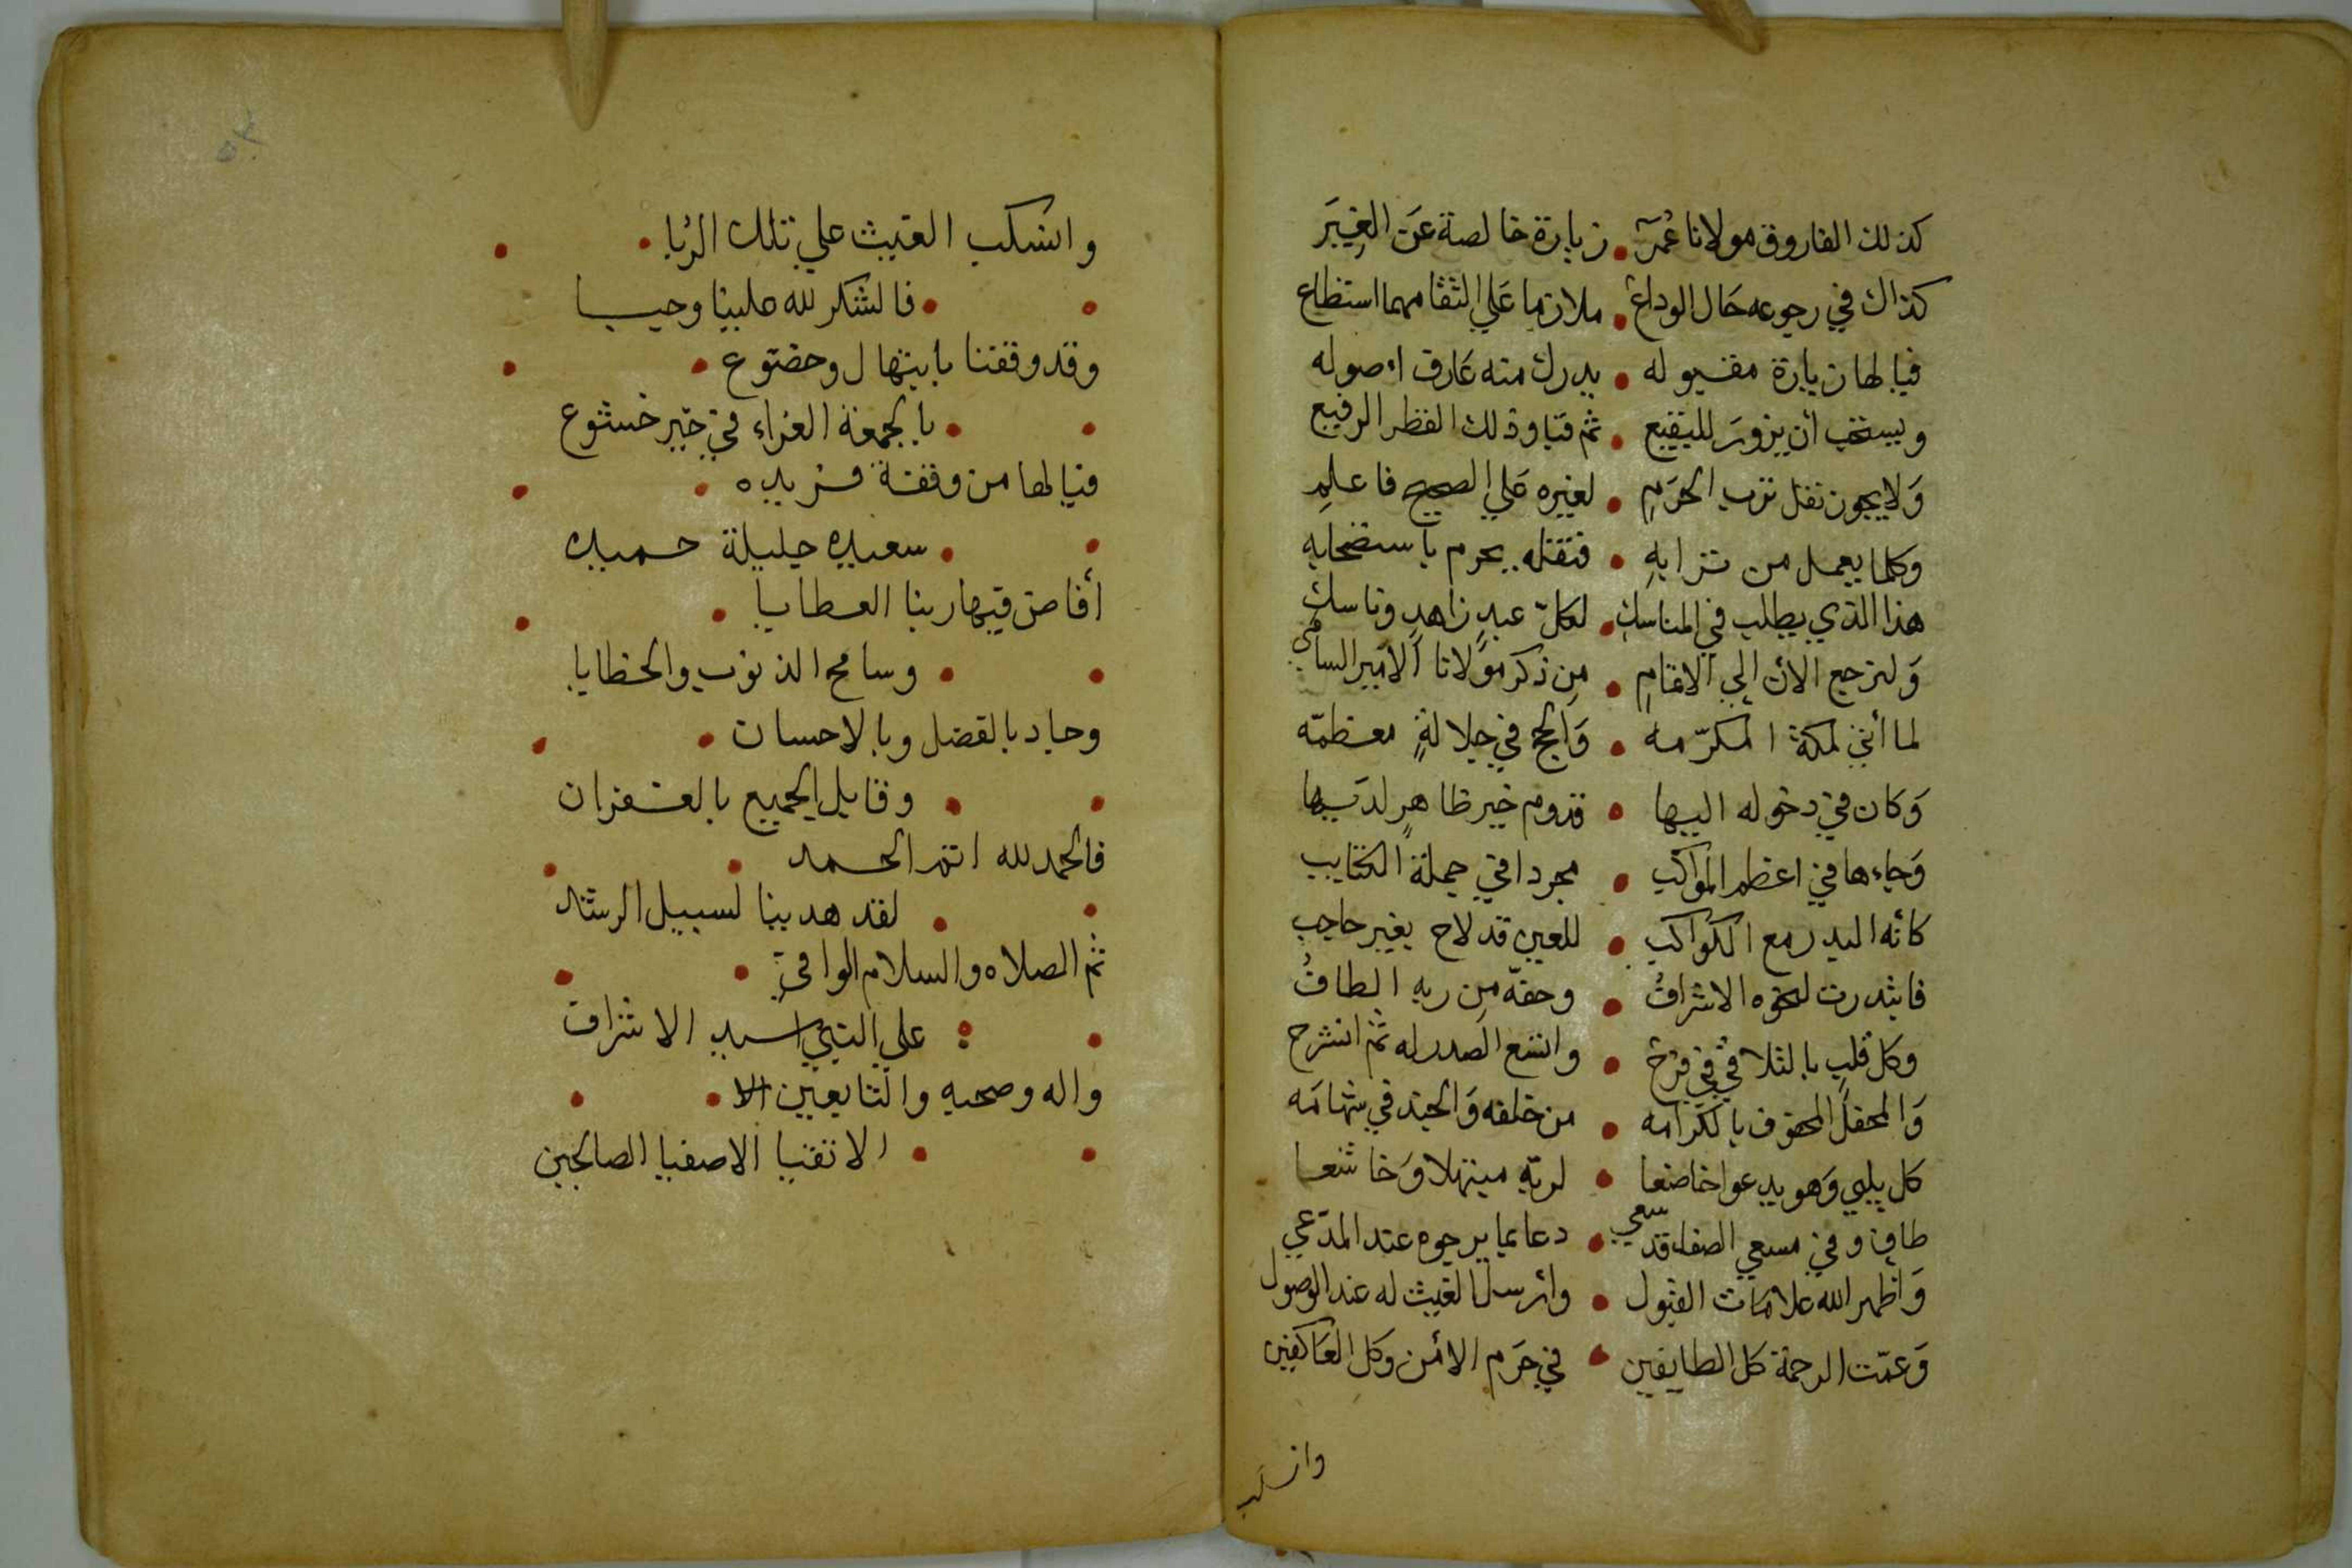 كذلك الفاروق مولانا عُمَر • زيارة خالصة عَن الغِيَر
كذاك في رجوعه حَال الوداع • ملازما عَلي الثقا مهما استطاع
فيا لها زيارة مقبوله • يدرك منه عَارف اصوله
ويستحب أن يزورَ للبقيع • ثم قبا وذلك القطر الرفيع
وَلا يجوز نقل ترب الحرَمِ • لغيره عَلي الصحيح فاعلمِ
وكلما يعمل من ترابهِ • فنقله يحرم باستصحابهِ
هذا الذي يطلب في المناسكِ • لكلّ عبدٍ زاهدٍ وناسك
وَلنرجع الأن إلي الاتمامِ • مِن ذكر مَولانا الأمير السامي
لما أتي لمكة المكرّمه • وَالحج في جلالةٍ معظمّه
وَكان في دخوله اليها • قدوم خير ظاهرٍ لدَيها
وَجاءها في اعظم المواكب • مجردا في جملة الكتايب
كأنه البدر مع الكواكب • للعين قد لاح بغير حاجب
فابتدرت لنحوه الاشرافُ • وحفّه مِن ربه الطافُ
وكل قلبٍ بالتلاقي في فرح • واتسع الصدر له ثم انشرح
وَالمحفل المحفوف بالكرَامه • من خلفه وَالجند في شهامَه
كل يلبي وَهو يدعوا خاضعا • لربّه مبتهلا وَخاشعا
طاف وفي مسعي الصفا قد سعي • دعا بما يرجوه عند المدّعي
وَاظهر الله علامَات القبول • وأرسل الغيث له عند الوصول
وَعمّت الرحمة كل الطايفين • في حرَم الأمن وَكل العَاكفين
وانسكب
وانسكب الغيث علي تلك الرُبا •
• فالشكر لله ملبيا وحيا
وقد وقفنا بابتهال وخضوع •
• بالجمعة الغراء في خير خشوع
فيا لها من وقفة فريده •
• سعيده جليلة حميده
أفاض فيها ربنا العطايا •
• وسامح الذنوب والخطايا
وجاد بالفضل وبالاحسان •
• وقابل الجميع بالغفران
فالحمد لله اتم الحمد •
• لقد هدينا لسبيل الرشد
ثم الصلاه والسلام الوافي •
• علي النبي سيد الاشراف
واله وصحبه والتابعين •
• الاتقيا الاصفيا الصالحين